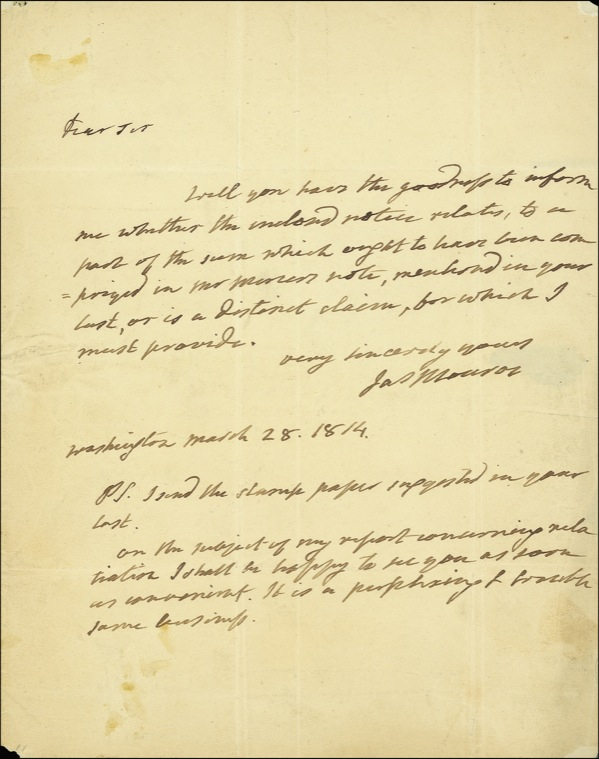 Dear Sir
Will you have the goodness to inform
me whether the inclosd notice relates, to a
part of the sum which ought to have been com
=prized in mr mercers note, mentiond in your
last, or is a distinct claim, for which I
must provide.
very sincerely yours
Jas Monroe
Washington march 28. 1814.
PS. I send the stamp paper suggested in your
last.
on the subject of my report concerning reta
liation I shall be happy to see you as soon
as convenient. It is a perplexing & trouble
some business.